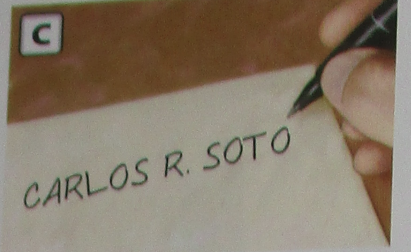 C
CARLOS R. SOTO